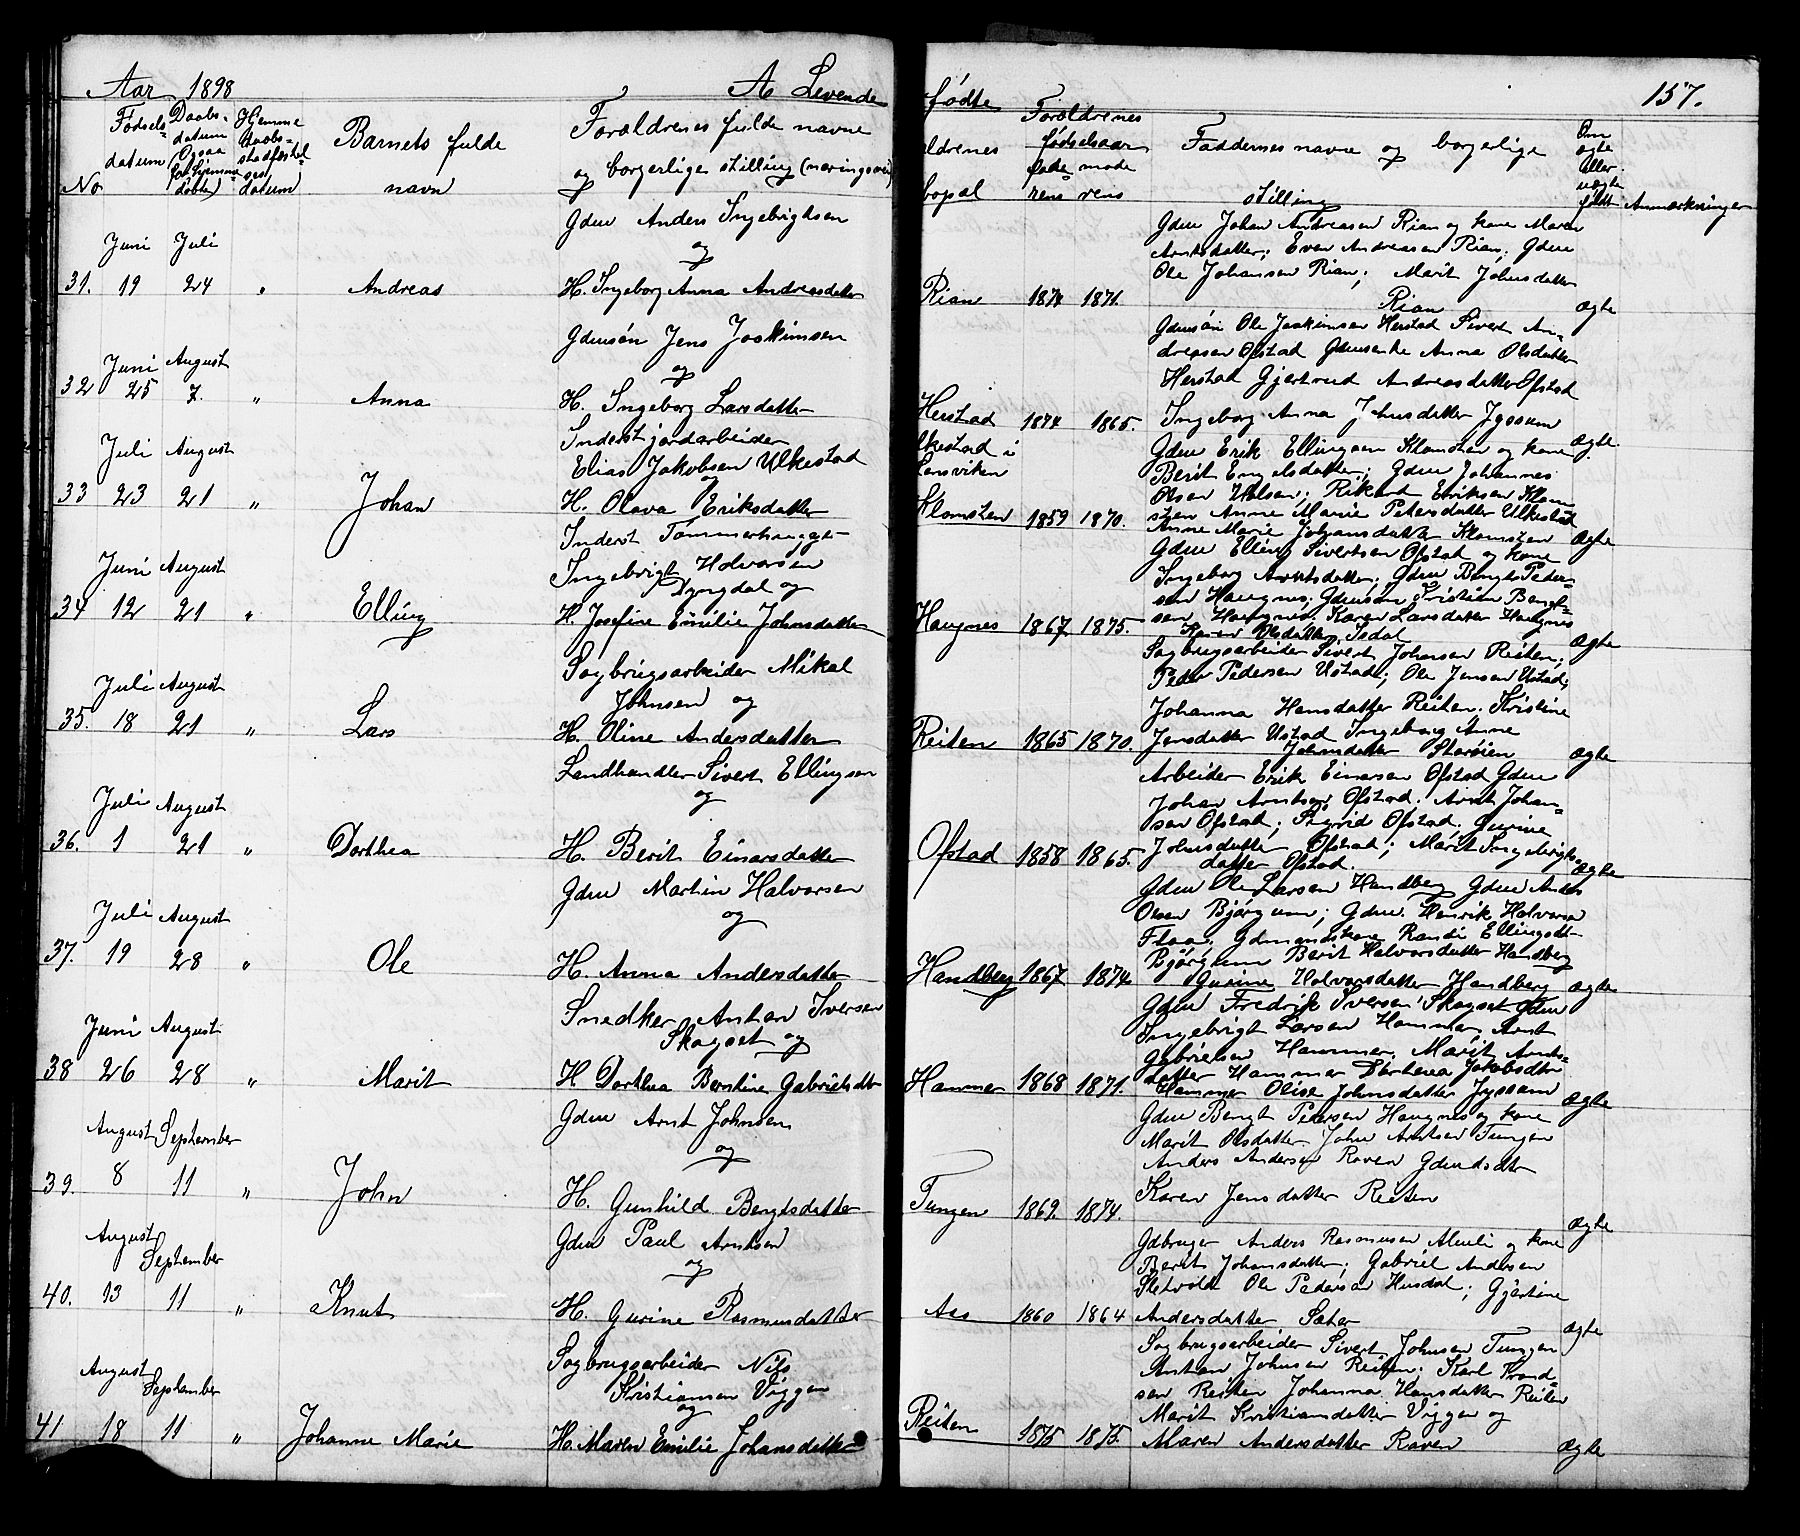 Aar 1898 A Levende
No
Fødsels-
datum
Daabs-
datum
Ogsaa
for hjemme
døbte)
Hjemme
daabs-
stadfæstel
ses
datum
Barnets fulde
navn
Forældrenes fulde navne
og borgerlige stilling (næringsvei)
Juni Juli
31. 19 24 " Andreas
Gdm Anders Ingebrigtsen
og
H. Ingeborg Anna Andreasdatter
Juni August
32 25 7. " Anna
Gdmsøn Jens Joakimsen
og
H. Ingeborg Larsdatter
Juli August
33 23 21 " Johan
Inderst jordarbeider
Elias Jakobsen Ulkestad
og
H. Olava Eriksdatter
Juni August
34 12 21 " Elling
Inderst Tømmerhugger
Ingebrigt Halvorsen
Dyngdal og
H. Josefine Emilie Johnsdatter
Juli August
35. 18 21 " Lars
Sagbrugsarbeider Mikal
Johnsen og
H. Oline Andersdatter
Juli August
36. 1 21 " Dorthea
Landhandler Sivert Ellingsen
og
H. Berit Einarsdatter
Juli August
37. 19 28 " Ole
Gdm Martin Halvorsen
og
H. Anna Andersdatter
Juni August
38 26 28 " Marit
Snedker Anton Iversen
Skagset og
H Dorthea Berntine Gabrielsdtr
August September
39. 8 11 " John
Gdm Arnt Johnsen
og
H. Gunhild Bengtsdatter
August
September
40. 13 11 " Knut
Gdm Paul Arntsen
og
H. Gurine Rasmusdatter
August
September
41 18 11 " Johanne Marie
Sagbrugsarbeider Nils
Kristiansen Viggen
og
H. Maren Emilie Johansdatter
fødte 157.
ldrenes
bopæl
Forældrenes
fødselsaar
fade- mode
rens rens
Faddernes navne og borgerlige
stilling
Om
ægte
eller
uægte
født
Anmærkninger
Gdm Johan Andreasen Rian og kone Maren
Arntsdatter; Even Andreasen Rian; Gdm
Ole Johansen Rian; Marit Johnsdatter
Rian
Rian 1874 1871. ægte
Gdmsøn Ole Joakimsen Herstad Sivert An-
dreasen Ofstad Gdmenke Anna Olsdatter
Herstad Gjertrud Andreasdatter Ofstad
Ingeborg Anna Johnsdatter Jyssum
Herstad 1874 1865. ægte
lkestad i
Lensviken
Klomsten 1859 1870. ægte
Gdm Erik Ellingsen Klomsten og kone
Berit Engelsdatter; Gdm Johannes
Olsen Helsen; Rikard Eriksen Klom-
sten Anne Marie Petersdatter Ulkestad
Anne Marie Johansdatter Klomsten
Gdm Elling Sivertsen Ofstad og kone
Ingeborg Arntsdatter; Gdm Bengt Peder-
sen Haugnes; Gdmsøn Kristian Bengt-
sen Haugnes. Karen Larsdatter Haugnes
Karen Olsdatter Isdal
Haugnes 1867 1875. ægte
Sagbrugsarbeider Sivert Johansen Reiten;
Peder Pedersen Ustad; Ole Jensen Ustad;
Johanna Hansdatter Reiten. Kristine
Jensdatter Ustad Ingeborg Anne
Johnsdatter Størøien
Reiten 1865 1870. ægte
Arbeider Erik Einarsen Ofstad Gdm
Johan Arntsen Ofstad. Arnt Johan-
sen Ofstad; Sigrid Ofstad; Gurine
Johnsdatter Ofstad; Marit Ingebrigts
datter Ofstad.
Ofstad 1858 1865. ægte
Gdm Ole Larsen Handberg Gdm Anders
Olsen Bjørgum; Gdm. Henrik Halvorsen
Flaa; Gdmandskone Randi Ellingsdtr
Bjørgum Berit Halvorsdatter Handberg
Gurine Halvorsdatter Handberg
Handberg 1867 1874 ægte
Gdm Fredrik Iversen Skagset Gdm
Ingebrigt Larsen Hammer, Arnt
Gabrielsen Hammer. Marit Arnts-
datter Hammer Dorthea Jakobsdtr
Hammer Olise Johnsdatter Jyssum
Hammer 1868 1871. ægte
Gdm Bengt Petersen Haugnes og kone
Marit Olsdatter. John Arntsen Tungen
Anders Andersen Raven Gdmdsdtr
Karen Jensdatter Reiten
Tungen 1869. 1874. ægte
Gdbruger Anders Rasmusen Aluli og kone
Berit Johansdatter; Gabriel Andersen
Sletvold Ole Pedersen Husdal; Gjertine
Andersdatter Sæter
Aas 1860 1864 ægte
Sagbrugsarbeider Sivert Johnsen Tungen
Anton Johnsen Reiten; Karl Trond-
sen Reiten Johanna Hansdatter Reiten
Marit Kristiansdatter Viggen og
Maren Andersdatter Raven
Reiten 1875 1875. ægte